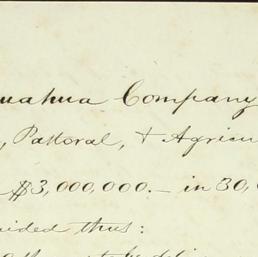 uahua Company
, Pastoral, & Agricu
$3,000,000.— in 30,
ided thus: